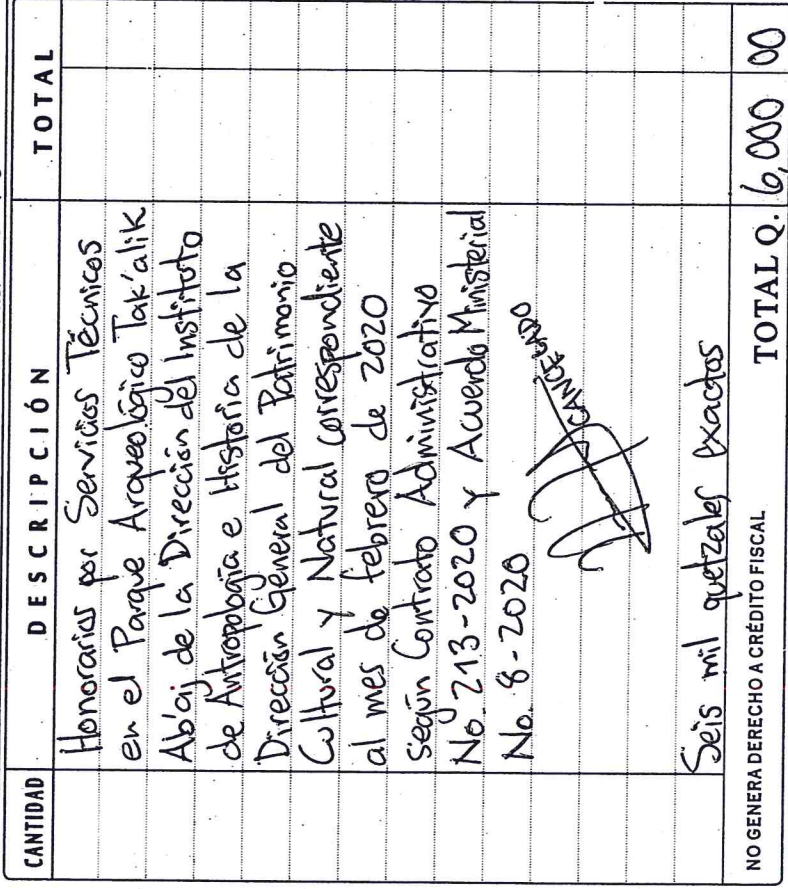 CANTIDAD DESCRIPCIÓN TOTAL
Honorarios por Servicios Técnicos
en el Parque Arqueológico Tak'alik
Ab'aj de la Dirección del Instituto
de Antropología e Historia de la
Dirección General del Patrimonio
Cultural y Natural correspondiente
al mes de febrero de 2020
según Contrato Administrativo
No. 213-2020 y Acuerdo Ministerial
No. 8-2020
CANCELADO
Seis mil quetzales exactos
NO GENERA DERECHO A CRÉDITO FISCAL TOTAL Q. 6,000 00